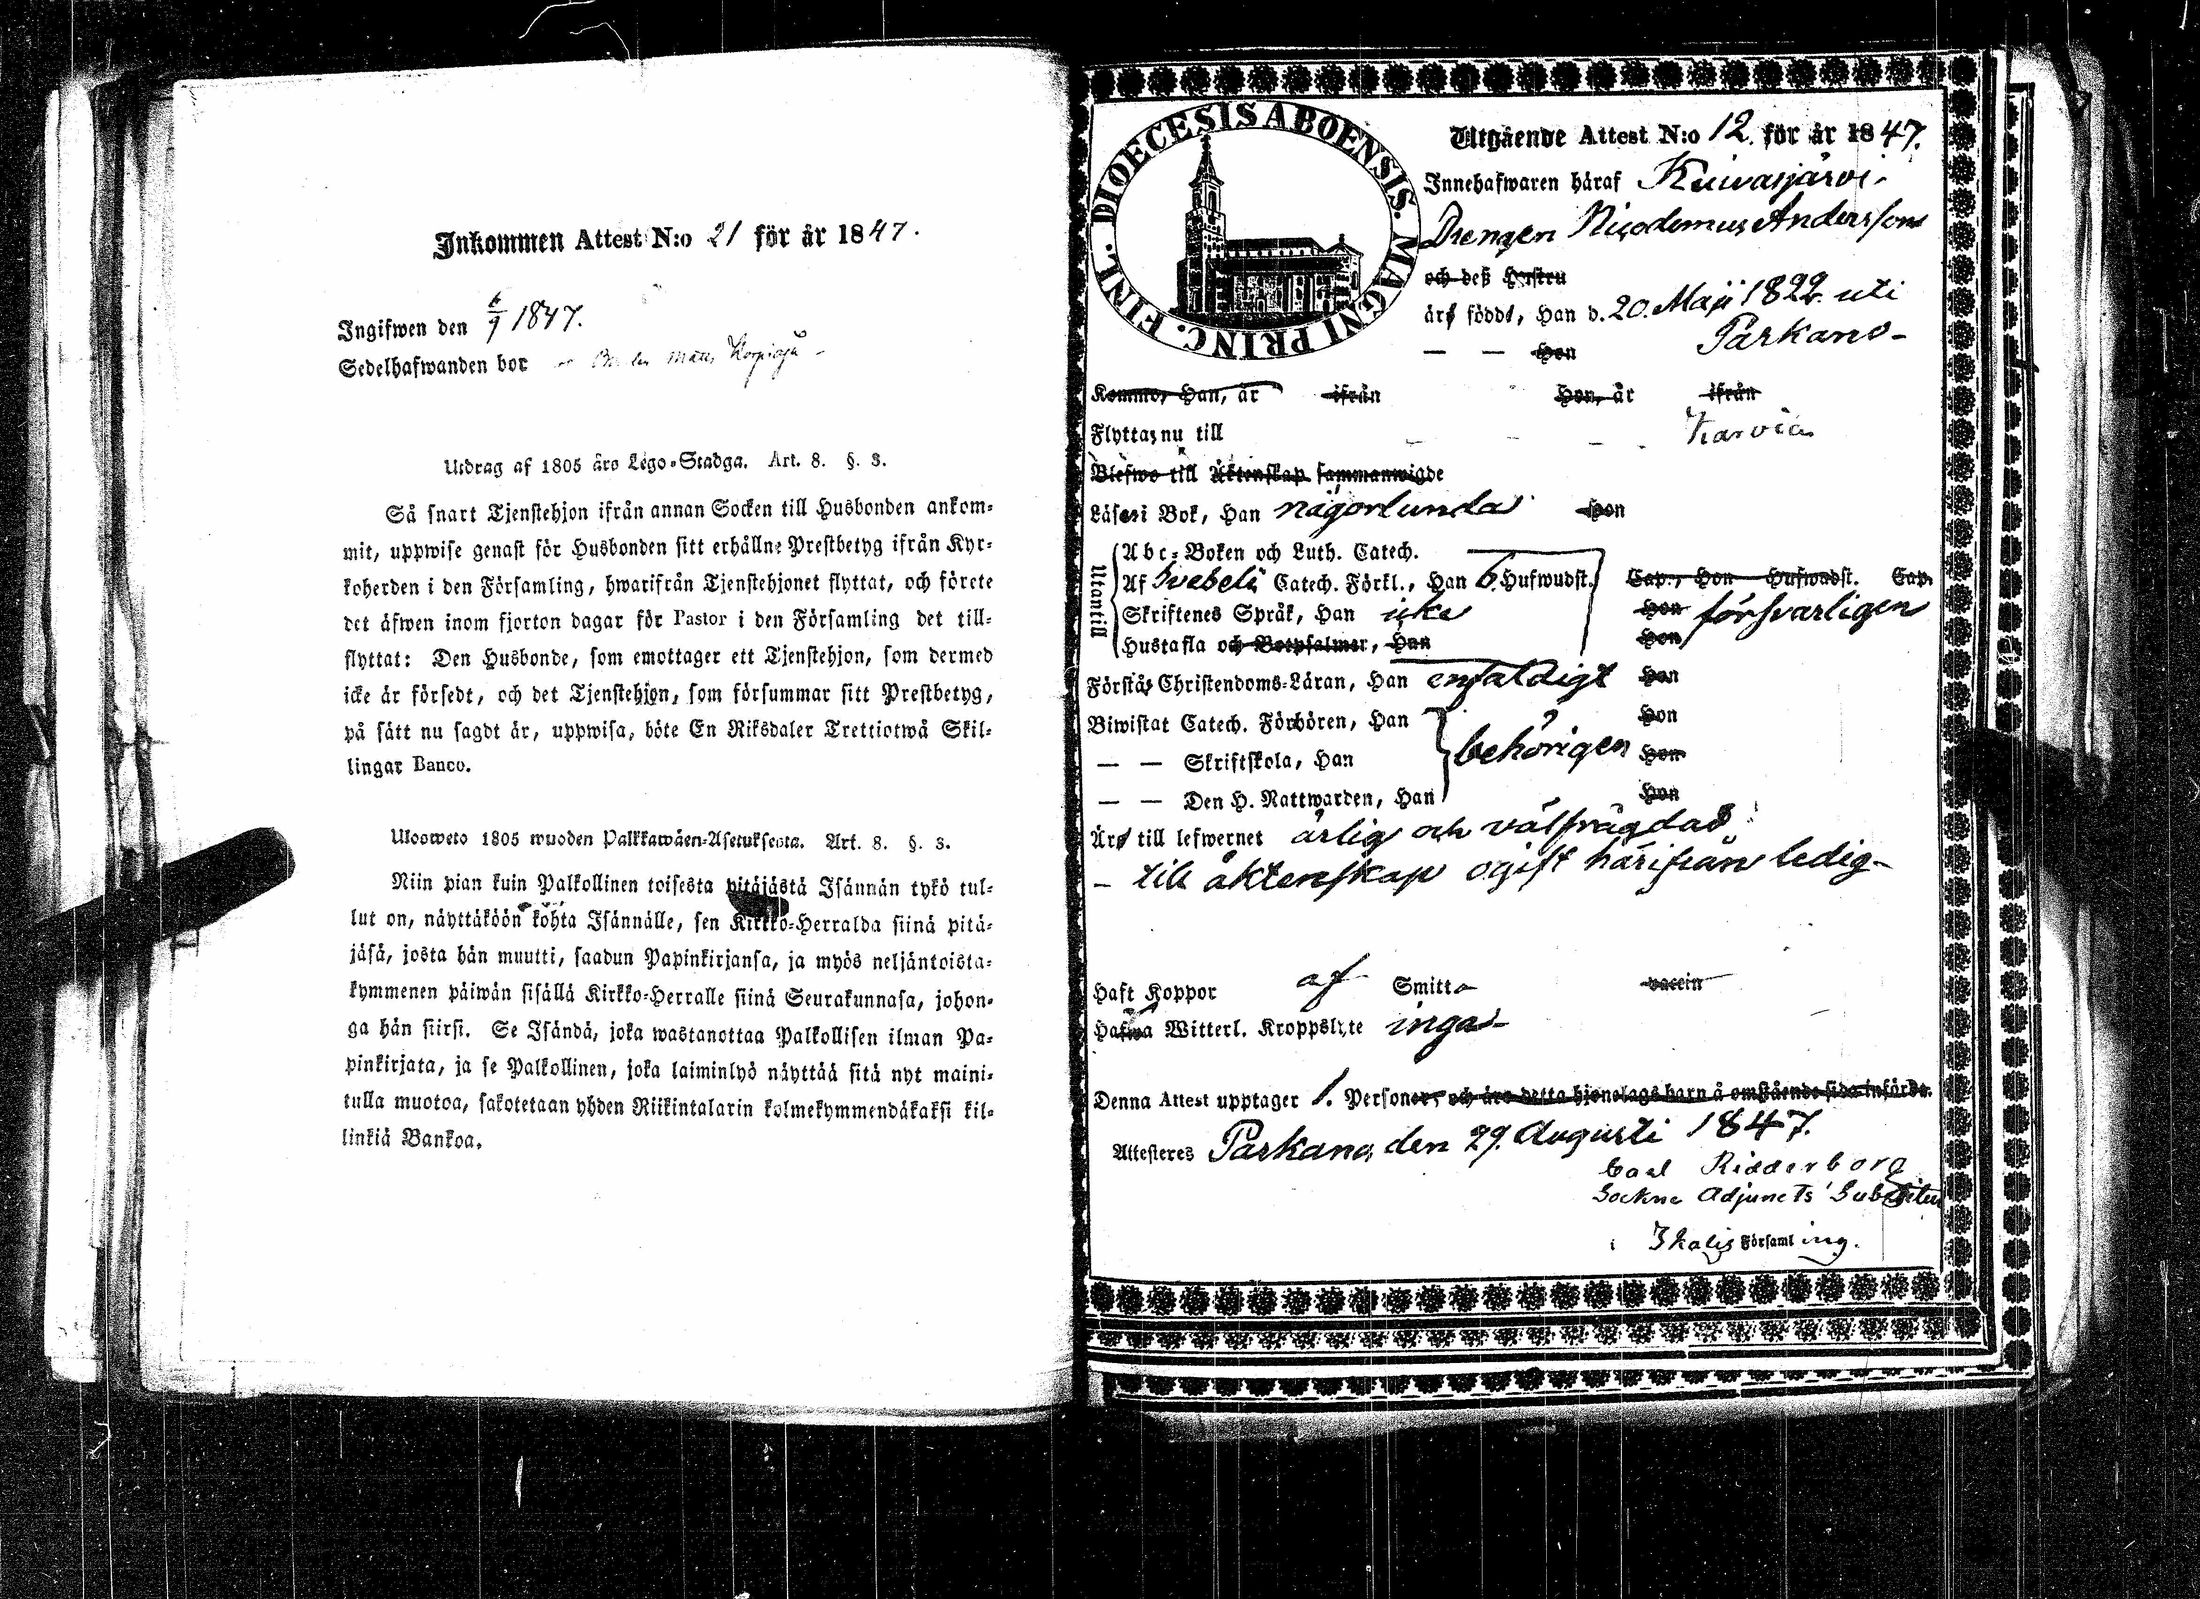 Inkommen Attest N:o 21 för år 1847.
Ingifwen den 6/9 1847.
Sedelhafwanden bor
Utdrag af 1805 års Lego-Stadga. Art. 8. §. 3.
Så snart Tjenstehjon ifrån annan Socken till Husbonden ankom-
mit, uppwise genast för Husbonden sitt erhållne Prestbetyg ifrån Kyr-
koherden i den Församling, hwarifrån Tjenstehjonet flyttat, och förete
det äfwen inom fjorton dagar för Pastor i den Församling det till-
flyttat: Den Husbonde, som emottager ett Tjenstehjon, som dermed
icke är försedt, och det Tjenstehjon, som försummar sitt Prestbetyg,
på sätt nu sagdt är, uppwisa, böte En Riksdaler Trettiotwå Skil-
lingar Banco.
Ulosweto 1805 wuoden Palkkawäen-Asetuksesta. Art. 8. §. 3.
Niin pian kuin Palkollinen toisesta pitäjästä Isännän tykö tul-
lut on, näyttäköön kohta Isännälle, sen Kirkko-Herralda siinä pitä-
jäsä, josta hän muutti, saadun Papinkirjansa, ja myös neljäntoista-
kymmenen päiwän sisällä Kirkko-Herralle siinä Seurakunnasa, johon-
ga hän siirsi. Se Isändä, joka wastanottaa Palkollisen ilman Pa-
pinkirjata, ja se Palkollinen, joka laiminlyö näyttää sitä nyt maini-
tulla muotoa, sakotetaan yhden Riikintalarin kolmekymmendäkaksi kil-
linkiä Bankoa.
DIOECESIS ABOENSIS. MAGNI PRINC. FINL.
Utgående Attest N:o 12. för år 1847.
Innehafwaren häraf Kuivasjärvi
Drengen Nicodemus Andersson
och deß Hustru
äro födde, Han d. 20. Maji 1822. uti
— — Hon Parkano
Kommo, Han, år ifrån Hon, år ifrån
Flyttas nu till Karvia
Blefwo till Äktenskap sammanwigde
Läser i Bok, Han någorlunda Hon
Utantill
Abc-Boken och Luth. Catech.
Af Svebelii Catech. Förkl., Han 6. Hufwudst. Cap., Hon Hufwudst. Cap.
Skriftenes Språk, Han icke Hon försvarligen
Hustafla och Botpsalmer, Han Hon
Förstår Christendoms-Läran, Han enfaldigt Hon
Biwistat Catech. Förhören, Han Hon
— — Skriftskola, Han behörigen Hon
— — Den H. Nattwarden, Han Hon
Äro till lefwernet ärlig och välfrägdad
– till äktenskap ogift härifrån ledig –
Haft Koppor af Smitta vaccin
Hafwa Witterl. Kroppslyte inga
Denna Attest upptager 1. Personer, och äro detta hjonelags barn å omstående sida införde.
Attesteras Parkano den 29. Augusti 1847.
Carl Ridderborg
Sockne Adjuncts Substitut
i Ikalis Församling.